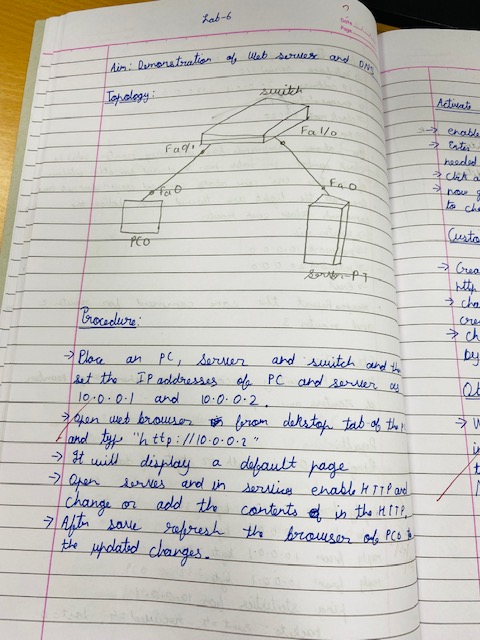 Lab-6
Date
Page
Aim: Demonstration of Web server and DNS
Topology:
switch
Fa0/1
Fa1/0
Fa0
Fa0
PC0
Server-PT
Procedure:
→ Place an PC, server and switch and the
set the IP addresses of PC and server as
10.0.0.1 and 10.0.0.2.
→ Open web browser from dekstop tab of the
and typ "http://10.0.0.2"
→ It will display a default page
→ Open serves and in services enable HTTP and
change or add the contents of in the HTTP.
→ After save refresh the browser of PC0 to
the updated changes.
Activate
→ enable
→ Enter
needed
→ click a
→ now g
to che
Custo
→ Crea
http
→ cha
crea
→ ch
by
Ob
→ W
in
t